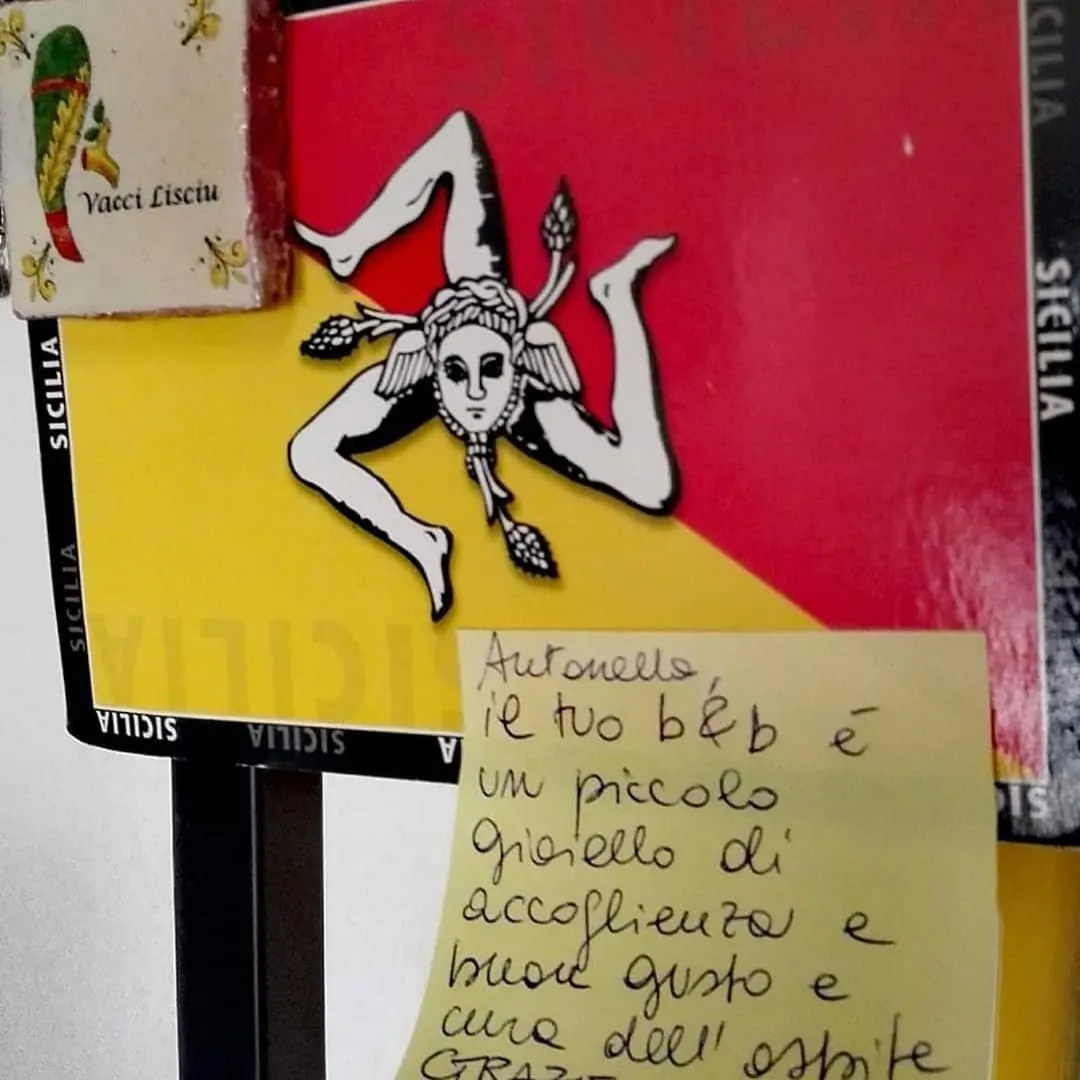 Vacci Lisciu
SICILIA
SICILIA
SICILIA
SICILIA
SICILIA
SICILIA
SICILIA
Antonella,
il tuo b&b è
un piccolo
gioiello di
accoglienza e
buon gusto e
cura dell'ospite
GRAZIE